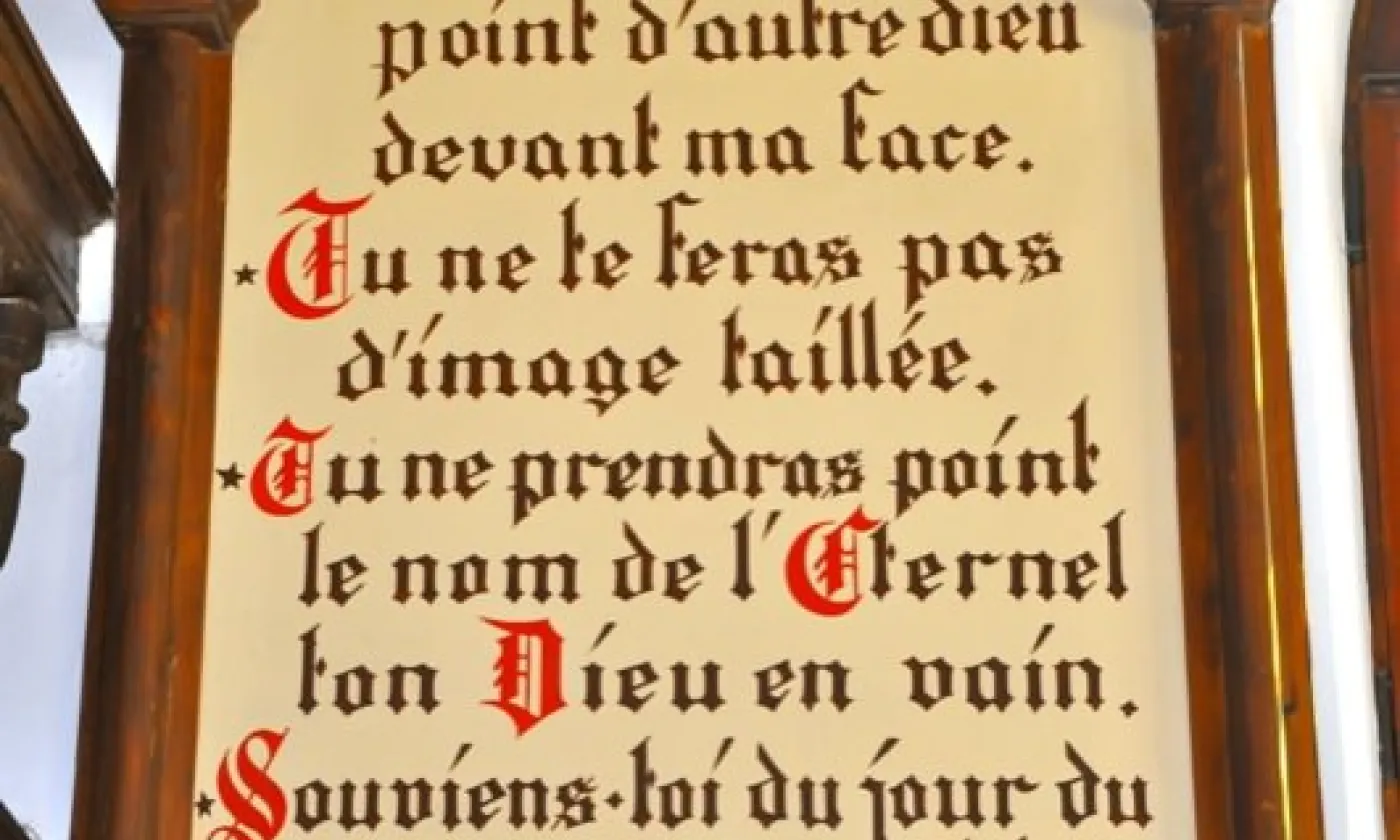 point d'autre dieu
devant ma face.
★Tu ne te feras pas
d'image taillée.
★Tu ne prendras point
le nom de l'Eternel
ton Dieu en vain.
★Souviens-toi du jour du